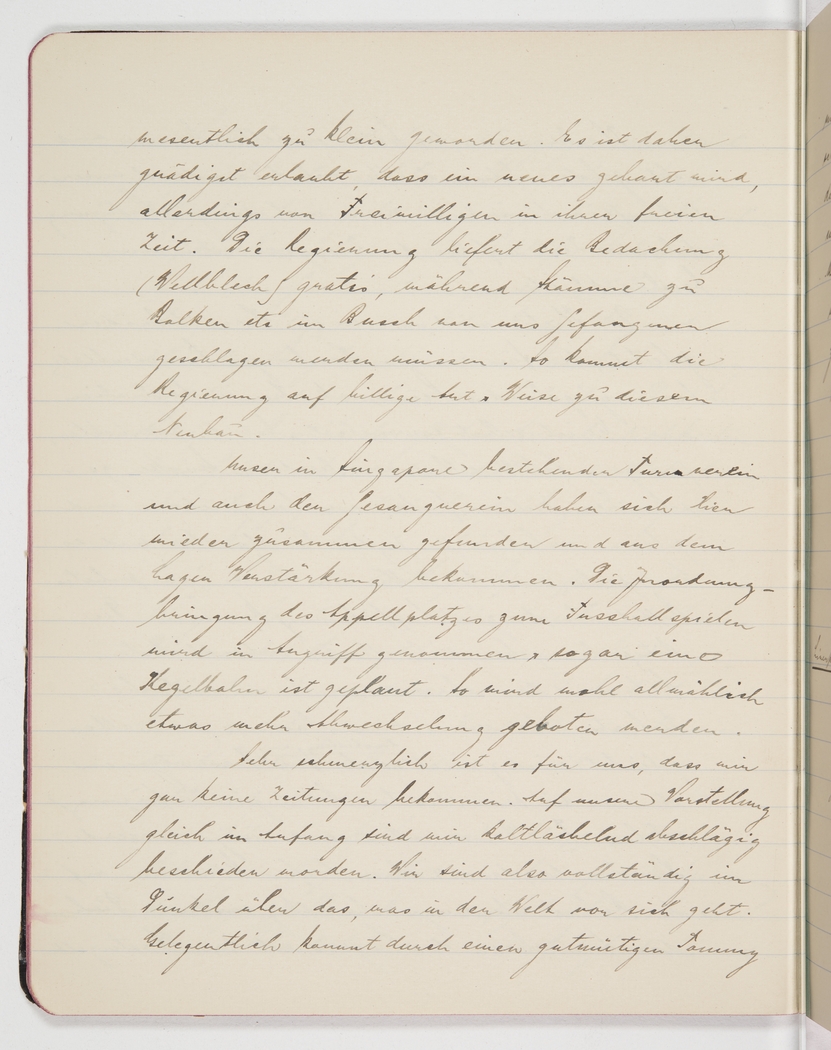 wesentlich zu klein geworden. Es ist daher
gnädigst erlaubt, dass ein neues gebaut wird,
allerdings von Freiwilligen in ihrer freien
Zeit. Die Regierung liefert die Bedachung
(Wellblech) gratis, während Stämme zu
Balken etc im Busch von uns Gefangenen
geschlagen werden müssen. So kommt die
Regierung auf billige Art & Weise zu diesem
Neubau.
Unser in Singapore bestehender Turnverein
und auch der Gesangverein haben sich hier
wieder zusammen gefunden und aus dem
Lager Verstärkung bekommen. Die Inordnung-
bringung des Appellplatzes zum Fussballspielen
wird in Angriff genommen & sogar eine
Kegelbahn ist geplant. So wird wohl allmählich
etwas mehr Abwechselung geboten werden.
Sehr schmerzlich ist es für uns, dass wir
gar keine Zeitungen bekommen. Auf unsere Vorstellung
gleich im Anfang sind wir kaltlächelnd abschlägig
beschieden worden. Wir sind also vollständig im
Dunkel über das, was in der Welt vor sich geht.
Gelegentlich kommt durch einen gutmütigen Tommy